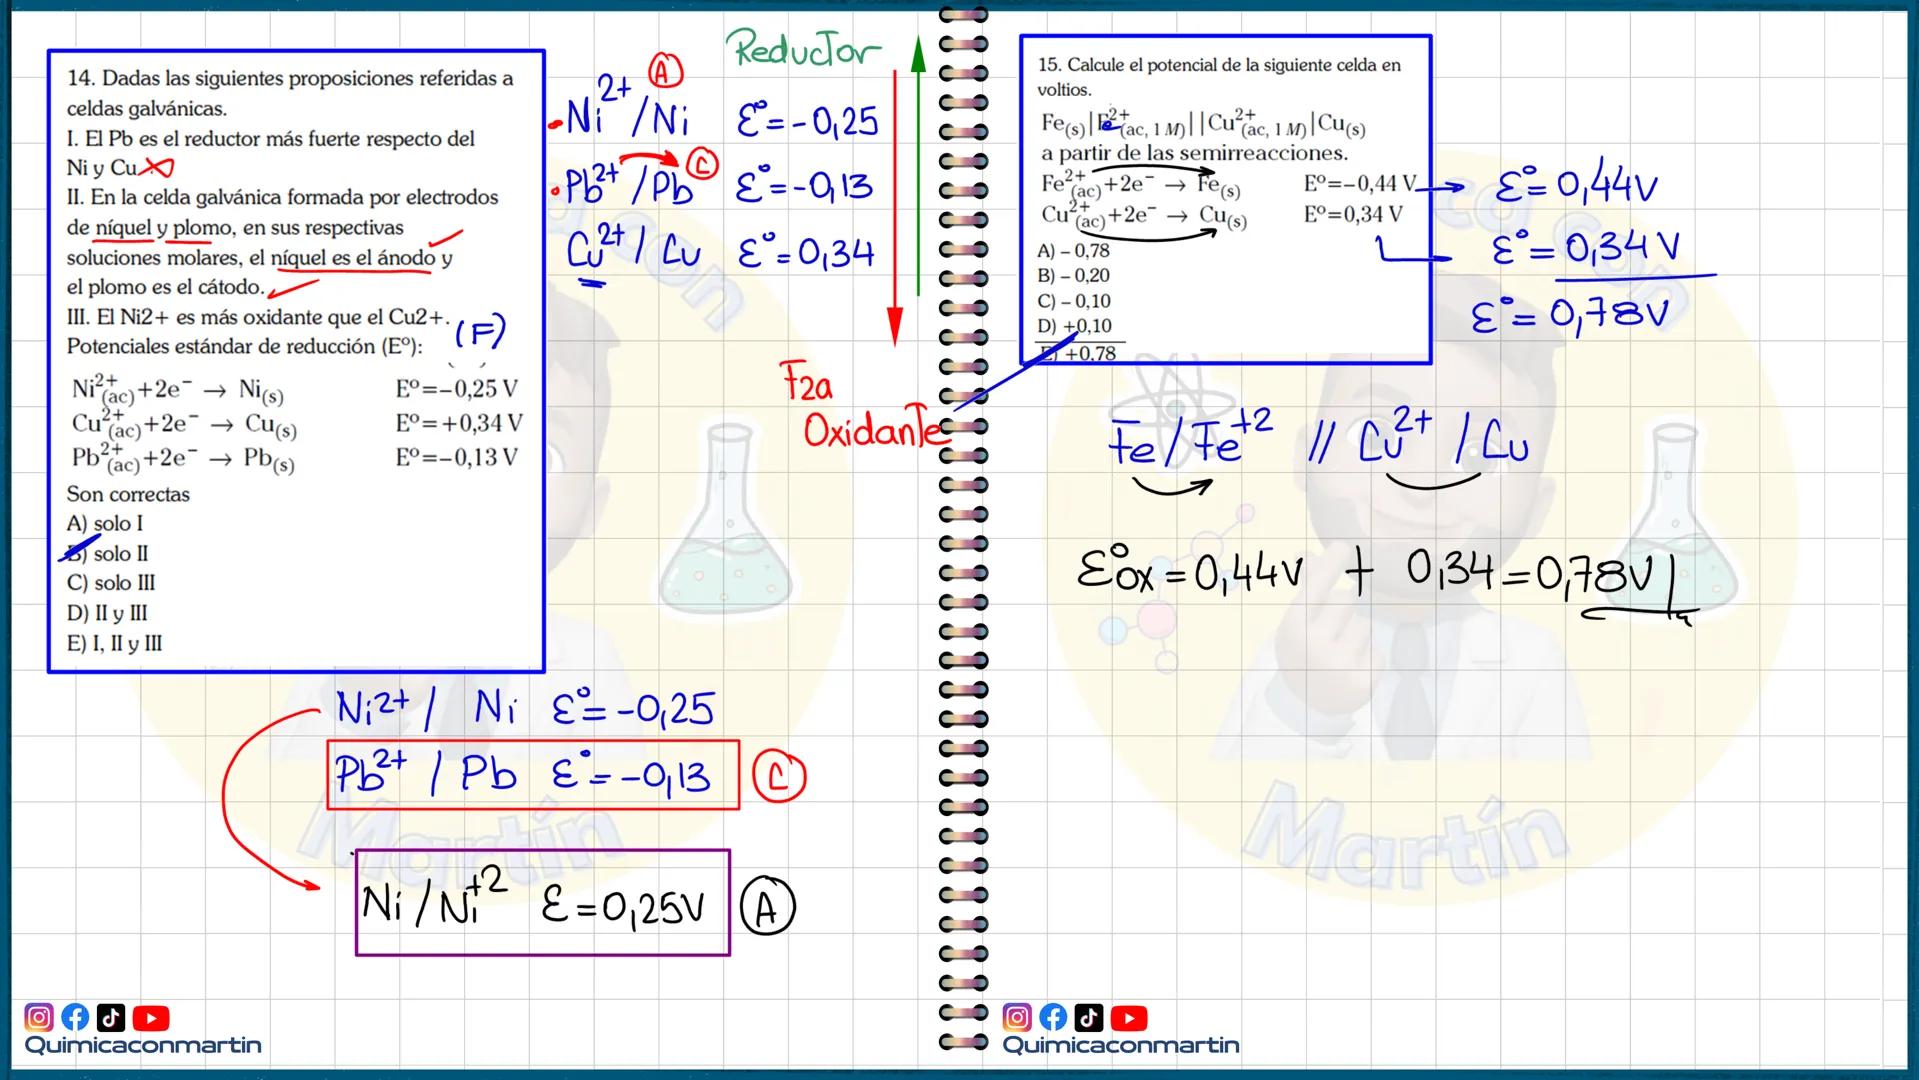 14. Dadas las siguientes proposiciones referidas a
celdas galvánicas.
I. El Pb es el reductor más fuerte respecto del
Ni y Cu.
II. En la celda galvánica formada por electrodos
de níquel y plomo, en sus respectivas
soluciones molares, el níquel es el ánodo y
el plomo es el cátodo.
III. El Ni2+ es más oxidante que el Cu2+.
(F)
Potenciales estándar de reducción (Eº):
Ni²⁺(ac)+2e⁻ → Ni(s) Eº=−0,25 V
Cu²⁺(ac)+2e⁻ → Cu(s) Eº=+0,34 V
Pb²⁺(ac)+2e⁻ → Pb(s) Eº=−0,13 V
Son correctas
A) solo I
B) solo II
C) solo III
D) II y III
E) I, II y III
Reductor
A
Ni²⁺/Ni Ɛº=-0,25
C
Pb²⁺/Pb Ɛº=-0,13
Cu²⁺/Cu Ɛº=0,34
Fza
Oxidante
Ni²⁺/ Ni Ɛº=-0,25
Pb²⁺ / Pb Ɛº=-0,13 C
Ni/Ni⁺² Ɛ=0,25V A
Quimicaconmartin
15. Calcule el potencial de la siguiente celda en
voltios.
Fe(s)|Fe²⁺(ac, 1 M)||Cu²⁺(ac, 1 M)|Cu(s)
a partir de las semirreacciones.
Fe²⁺(ac)+2e⁻ → Fe(s) Eº=−0,44 V
Cu²⁺(ac)+2e⁻ → Cu(s) Eº=0,34 V
A) – 0,78
B) – 0,20
C) – 0,10
D) +0,10
E) +0,78
Ɛº=0,44V
Ɛº=0,34V
Ɛº=0,78V
Fe/Fe⁺² // Cu²⁺/Cu
Ɛºox=0,44V + 0,34=0,78V
Martín
Martín
Quimicaconmartin